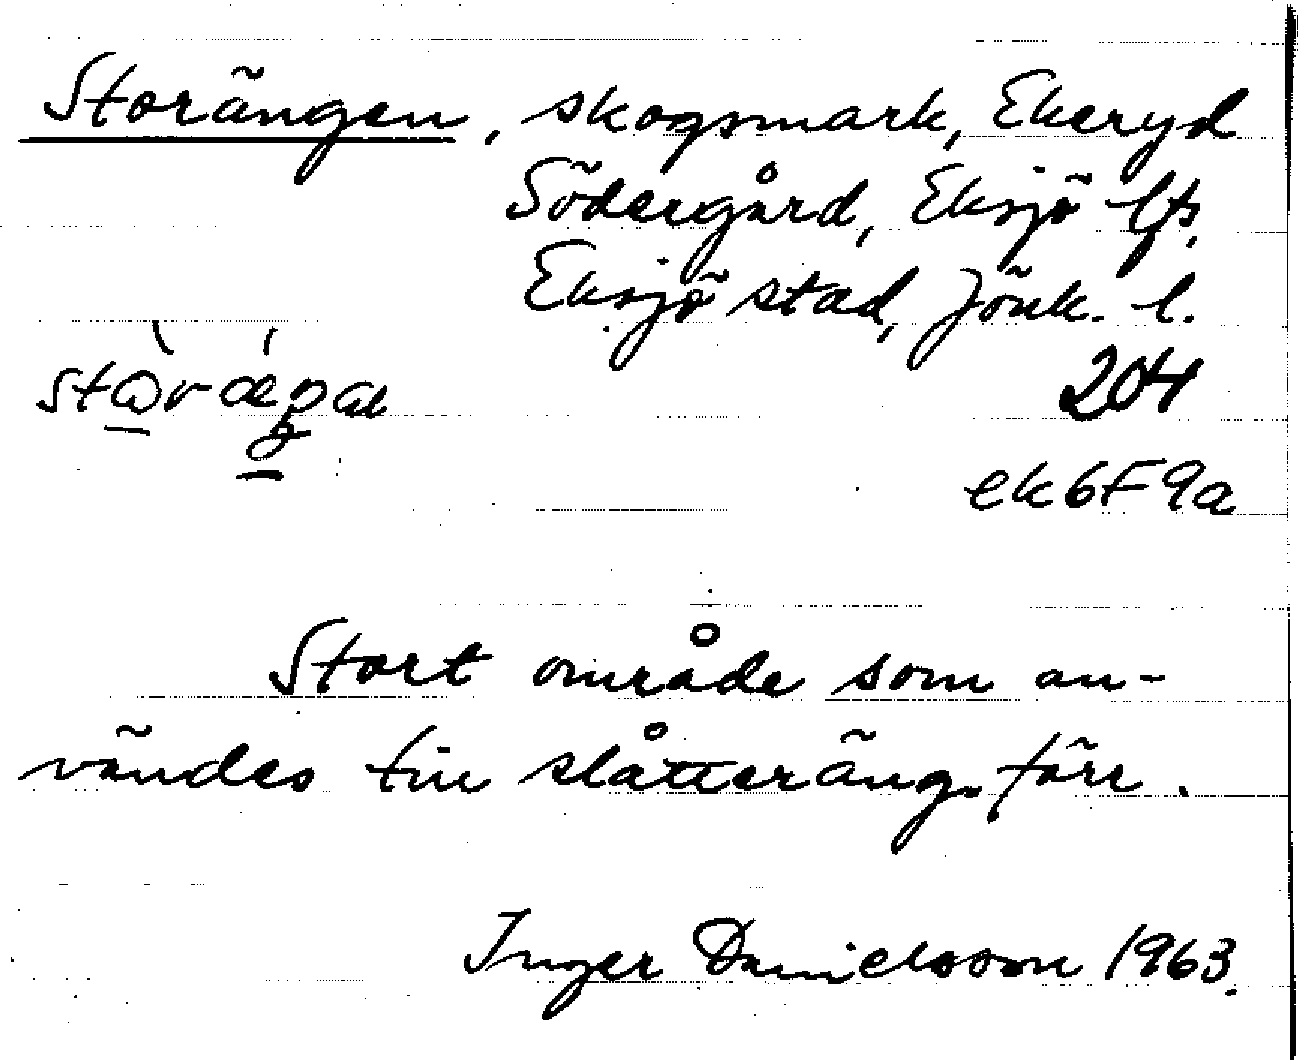 Storängen, skogsmark, Ekeryd
Södergård, Eksjö lfs,
Eksjö stad, Jönk. l.
204
ek6F9a
Stort område som an-
vändes till slåtteräng förr.
Inger Danielsson 1963.